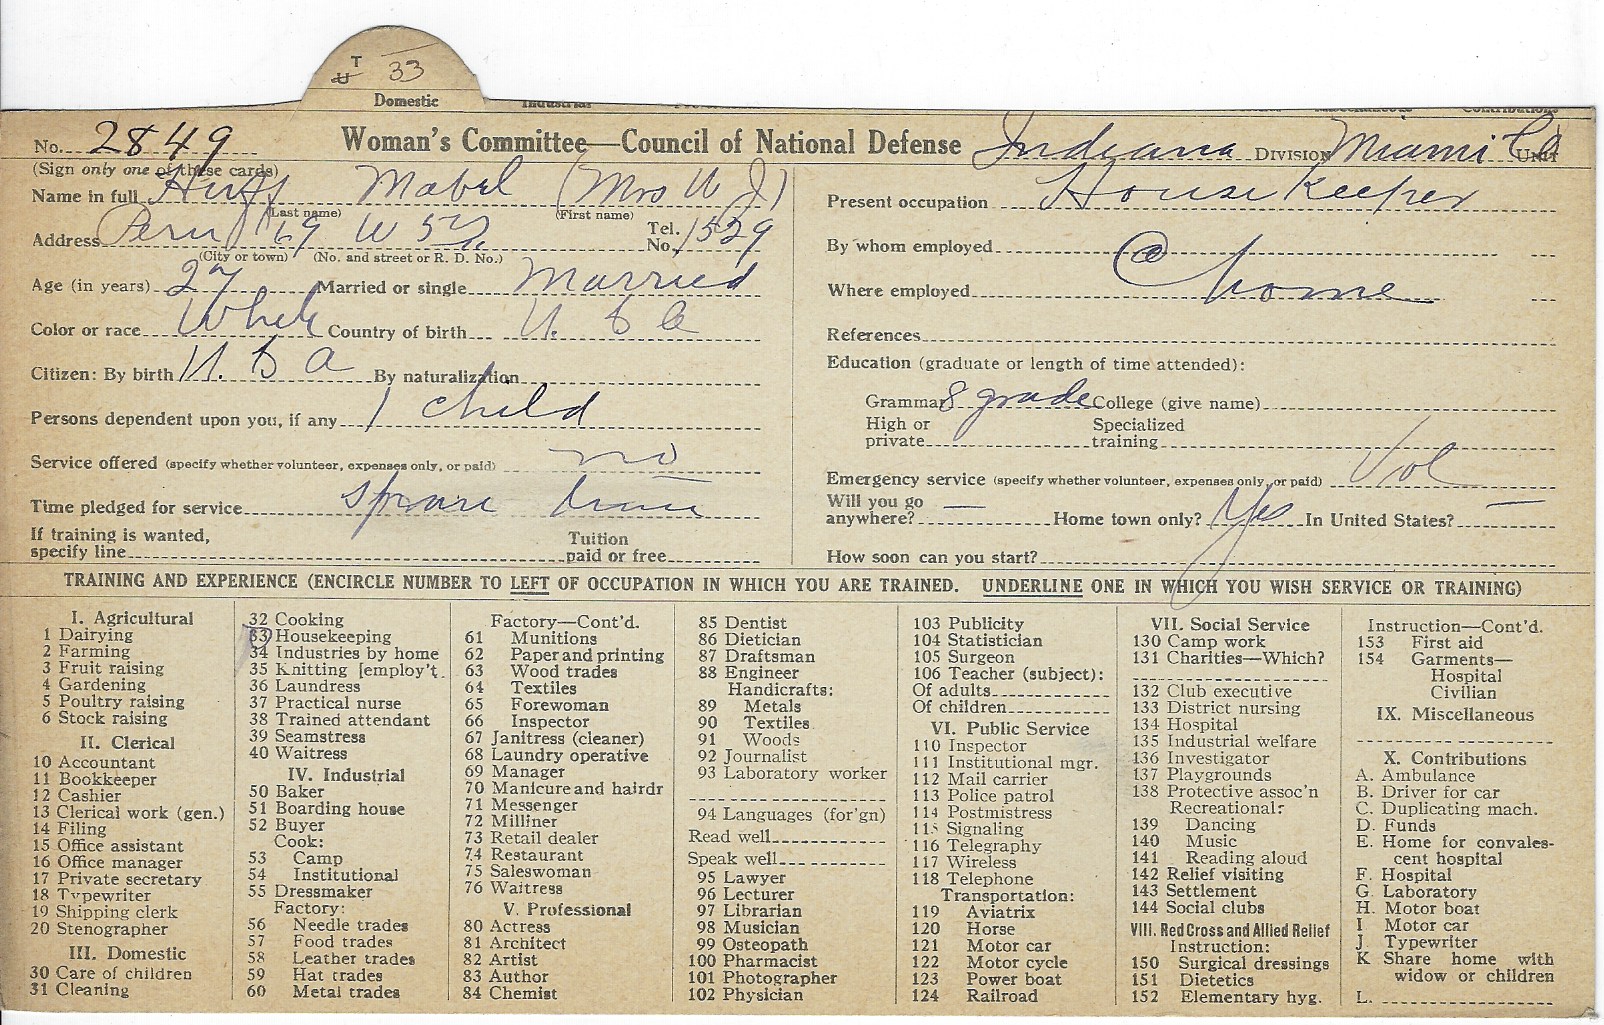 T
U 33
Domestic
No. 2849 Woman's Committee—Council of National Defense Indiana Division Miami Co Unit
(Sign only one of these cards)
Name in full Huff Mabel (Mrs W J)
(Last name) (First name)
Address Peru 169 W 5th Tel. No. 1529
(City or town) (No. and street or R. D. No.)
Age (in years) 27 Married or single Married
Color or race White Country of birth U. S A
Citizen: By birth U. S A By naturalization
Persons dependent upon you, if any 1 child
Service offered (specify whether volunteer, expenses only, or paid) no
Time pledged for service
If training is wanted,
specify line Tuition paid or free
Present occupation House Keeper
By whom employed @
Where employed home
References
Education (graduate or length of time attended):
Grammar 8 grade College (give name)
High or private Specialized training
Emergency service (specify whether volunteer, expenses only, or paid) Vol
Will you go
anywhere? — Home town only? Yes In United States? —
How soon can you start?
TRAINING AND EXPERIENCE (ENCIRCLE NUMBER TO LEFT OF OCCUPATION IN WHICH YOU ARE TRAINED. UNDERLINE ONE IN WHICH YOU WISH SERVICE OR TRAINING)
I. Agricultural
1 Dairying
2 Farming
3 Fruit raising
4 Gardening
5 Poultry raising
6 Stock raising
II. Clerical
10 Accountant
11 Bookkeeper
12 Cashier
13 Clerical work (gen.)
14 Filing
15 Office assistant
16 Office manager
17 Private secretary
18 Typewriter
19 Shipping clerk
20 Stenographer
III. Domestic
30 Care of children
31 Cleaning
32 Cooking
33 Housekeeping
34 Industries by home
35 Knitting [employ't.
36 Laundress
37 Practical nurse
38 Trained attendant
39 Seamstress
40 Waitress
IV. Industrial
50 Baker
51 Boarding house
52 Buyer
Cook:
53 Camp
54 Institutional
55 Dressmaker
Factory:
56 Needle trades
57 Food trades
58 Leather trades
59 Hat trades
60 Metal trades
Factory—Cont'd.
61 Munitions
62 Paper and printing
63 Wood trades
64 Textiles
65 Forewoman
66 Inspector
67 Janitress (cleaner)
68 Laundry operative
69 Manager
70 Manicure and hairdr
71 Messenger
72 Milliner
73 Retail dealer
74 Restaurant
75 Saleswoman
76 Waitress
V. Professional
80 Actress
81 Architect
82 Artist
83 Author
84 Chemist
85 Dentist
86 Dietician
87 Draftsman
88 Engineer
Handicrafts:
89 Metals
90 Textiles
91 Woods
92 Journalist
93 Laboratory worker
94 Languages (for'gn)
Read well
Speak well
95 Lawyer
96 Lecturer
97 Librarian
98 Musician
99 Osteopath
100 Pharmacist
101 Photographer
102 Physician
103 Publicity
104 Statistician
105 Surgeon
106 Teacher (subject):
Of adults
Of children
VI. Public Service
110 Inspector
111 Institutional mgr.
112 Mail carrier
113 Police patrol
114 Postmistress
115 Signaling
116 Telegraphy
117 Wireless
118 Telephone
Transportation:
119 Aviatrix
120 Horse
121 Motor car
122 Motor cycle
123 Power boat
124 Railroad
VII. Social Service
130 Camp work
131 Charities—Which?
132 Club executive
133 District nursing
134 Hospital
135 Industrial welfare
136 Investigator
137 Playgrounds
138 Protective assoc'n
Recreational:
139 Dancing
140 Music
141 Reading aloud
142 Relief visiting
143 Settlement
144 Social clubs
VIII. Red Cross and Allied Relief
Instruction:
150 Surgical dressings
151 Dietetics
152 Elementary hyg.
Instruction—Cont'd.
153 First aid
154 Garments—
Hospital
Civilian
IX. Miscellaneous
X. Contributions
A. Ambulance
B. Driver for car
C. Duplicating mach.
D. Funds
E. Home for convales-
cent hospital
F. Hospital
G. Laboratory
H. Motor boat
I Motor car
J. Typewriter
K Share home with
widow or children
L.